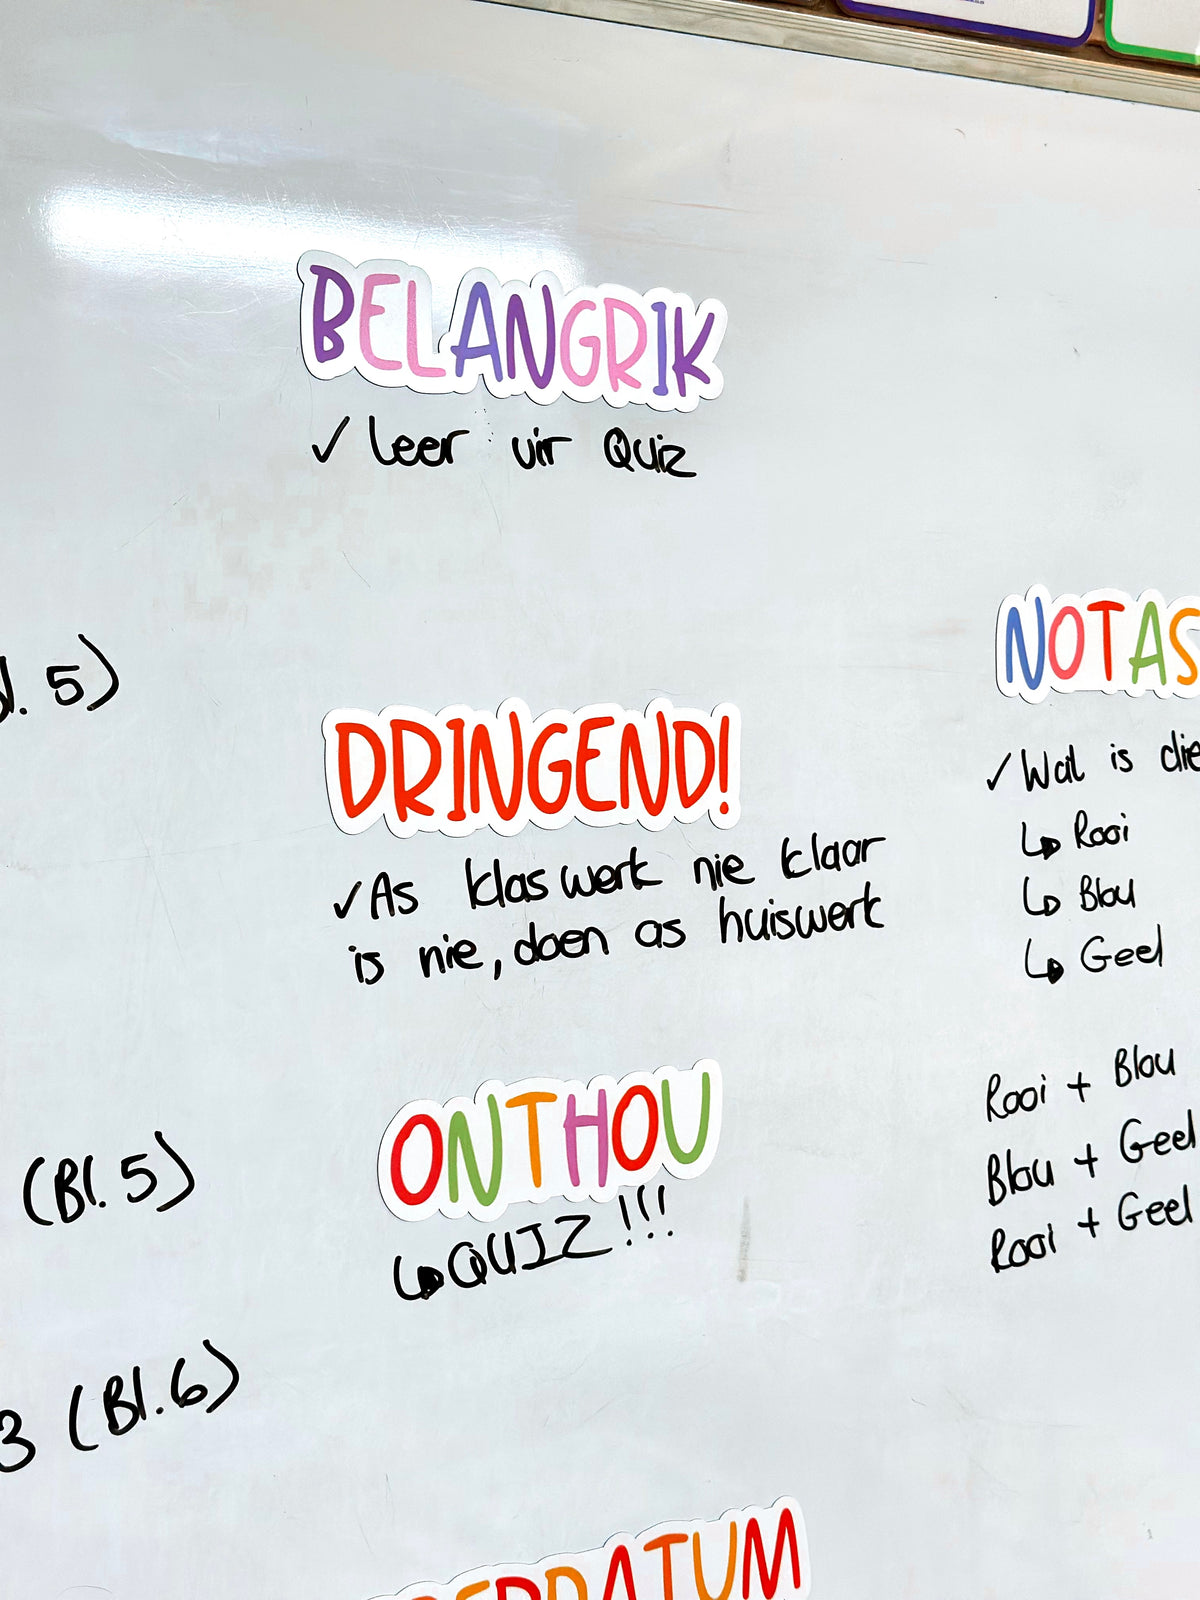 BELANGRIK
✓ Leer vir Quiz
5)
DRINGEND!
✓ As klaswerk nie klaar
is nie, doen as huiswerk
(Bl. 5)
ONTHOU
↳ QUIZ!!!
3 (Bl. 6)
NOTAS
✓ Wat is die
↳ Rooi
↳ Blou
↳ Geel
Rooi + Blou
Blou + Geel
Rooi + Geel